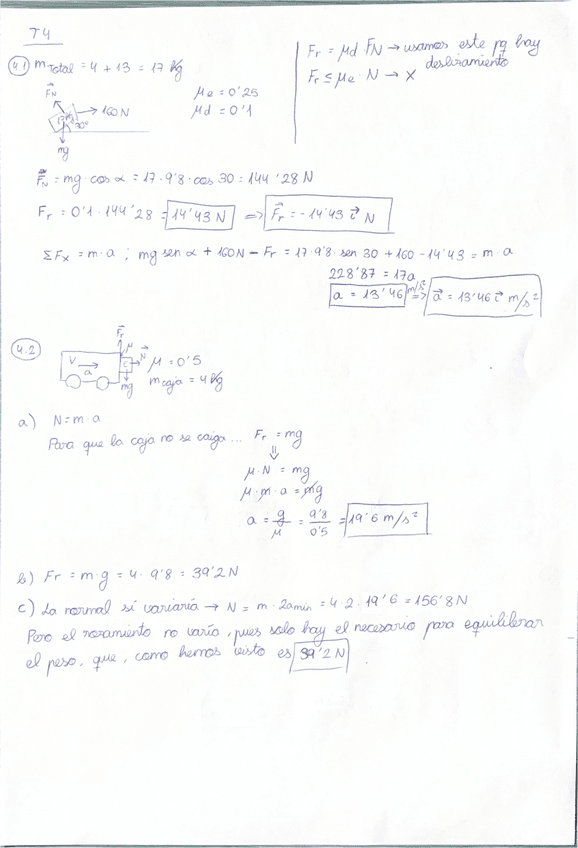 T4
4.1 m Total = 4 + 13 = 17 kg
Fr = μd · FN → usamos este pq hay
deslizamiento
Fr ≤ μe · N → X
μe = 0'25
μd = 0'1
FN
160N
30º
mg
FN = mg · cos α = 17 · 9'8 · cos 30 = 144'28 N
Fr = 0'1 · 144'28 = 14'43 N ⇒ Fr = -14'43 i N
ΣFx = m · a ; mg sen α + 160N - Fr = 17 · 9'8 · sen 30 + 160 - 14'43 = m · a
228'87 = 17a
a = 13'46 m/s² ⇒ a = 13'46 i m/s²
4.2
Fr
μ
N
V
a
mg
μ = 0'5
m caja = 4 kg
a) N = m · a
Para que la caja no se caiga ... Fr = mg
⇓
μ · N = mg
μ · m · a = mg
a = g/μ = 9'8/0'5 = 19'6 m/s²
b) Fr = m · g = 4 · 9'8 = 39'2 N
c) La normal sí variaría → N = m · 2amin = 4 · 2 · 19'6 = 156'8 N
Pero el rozamiento no varía, pues solo hay el necesario para equilibrar
el peso, que, como hemos visto es 39'2 N